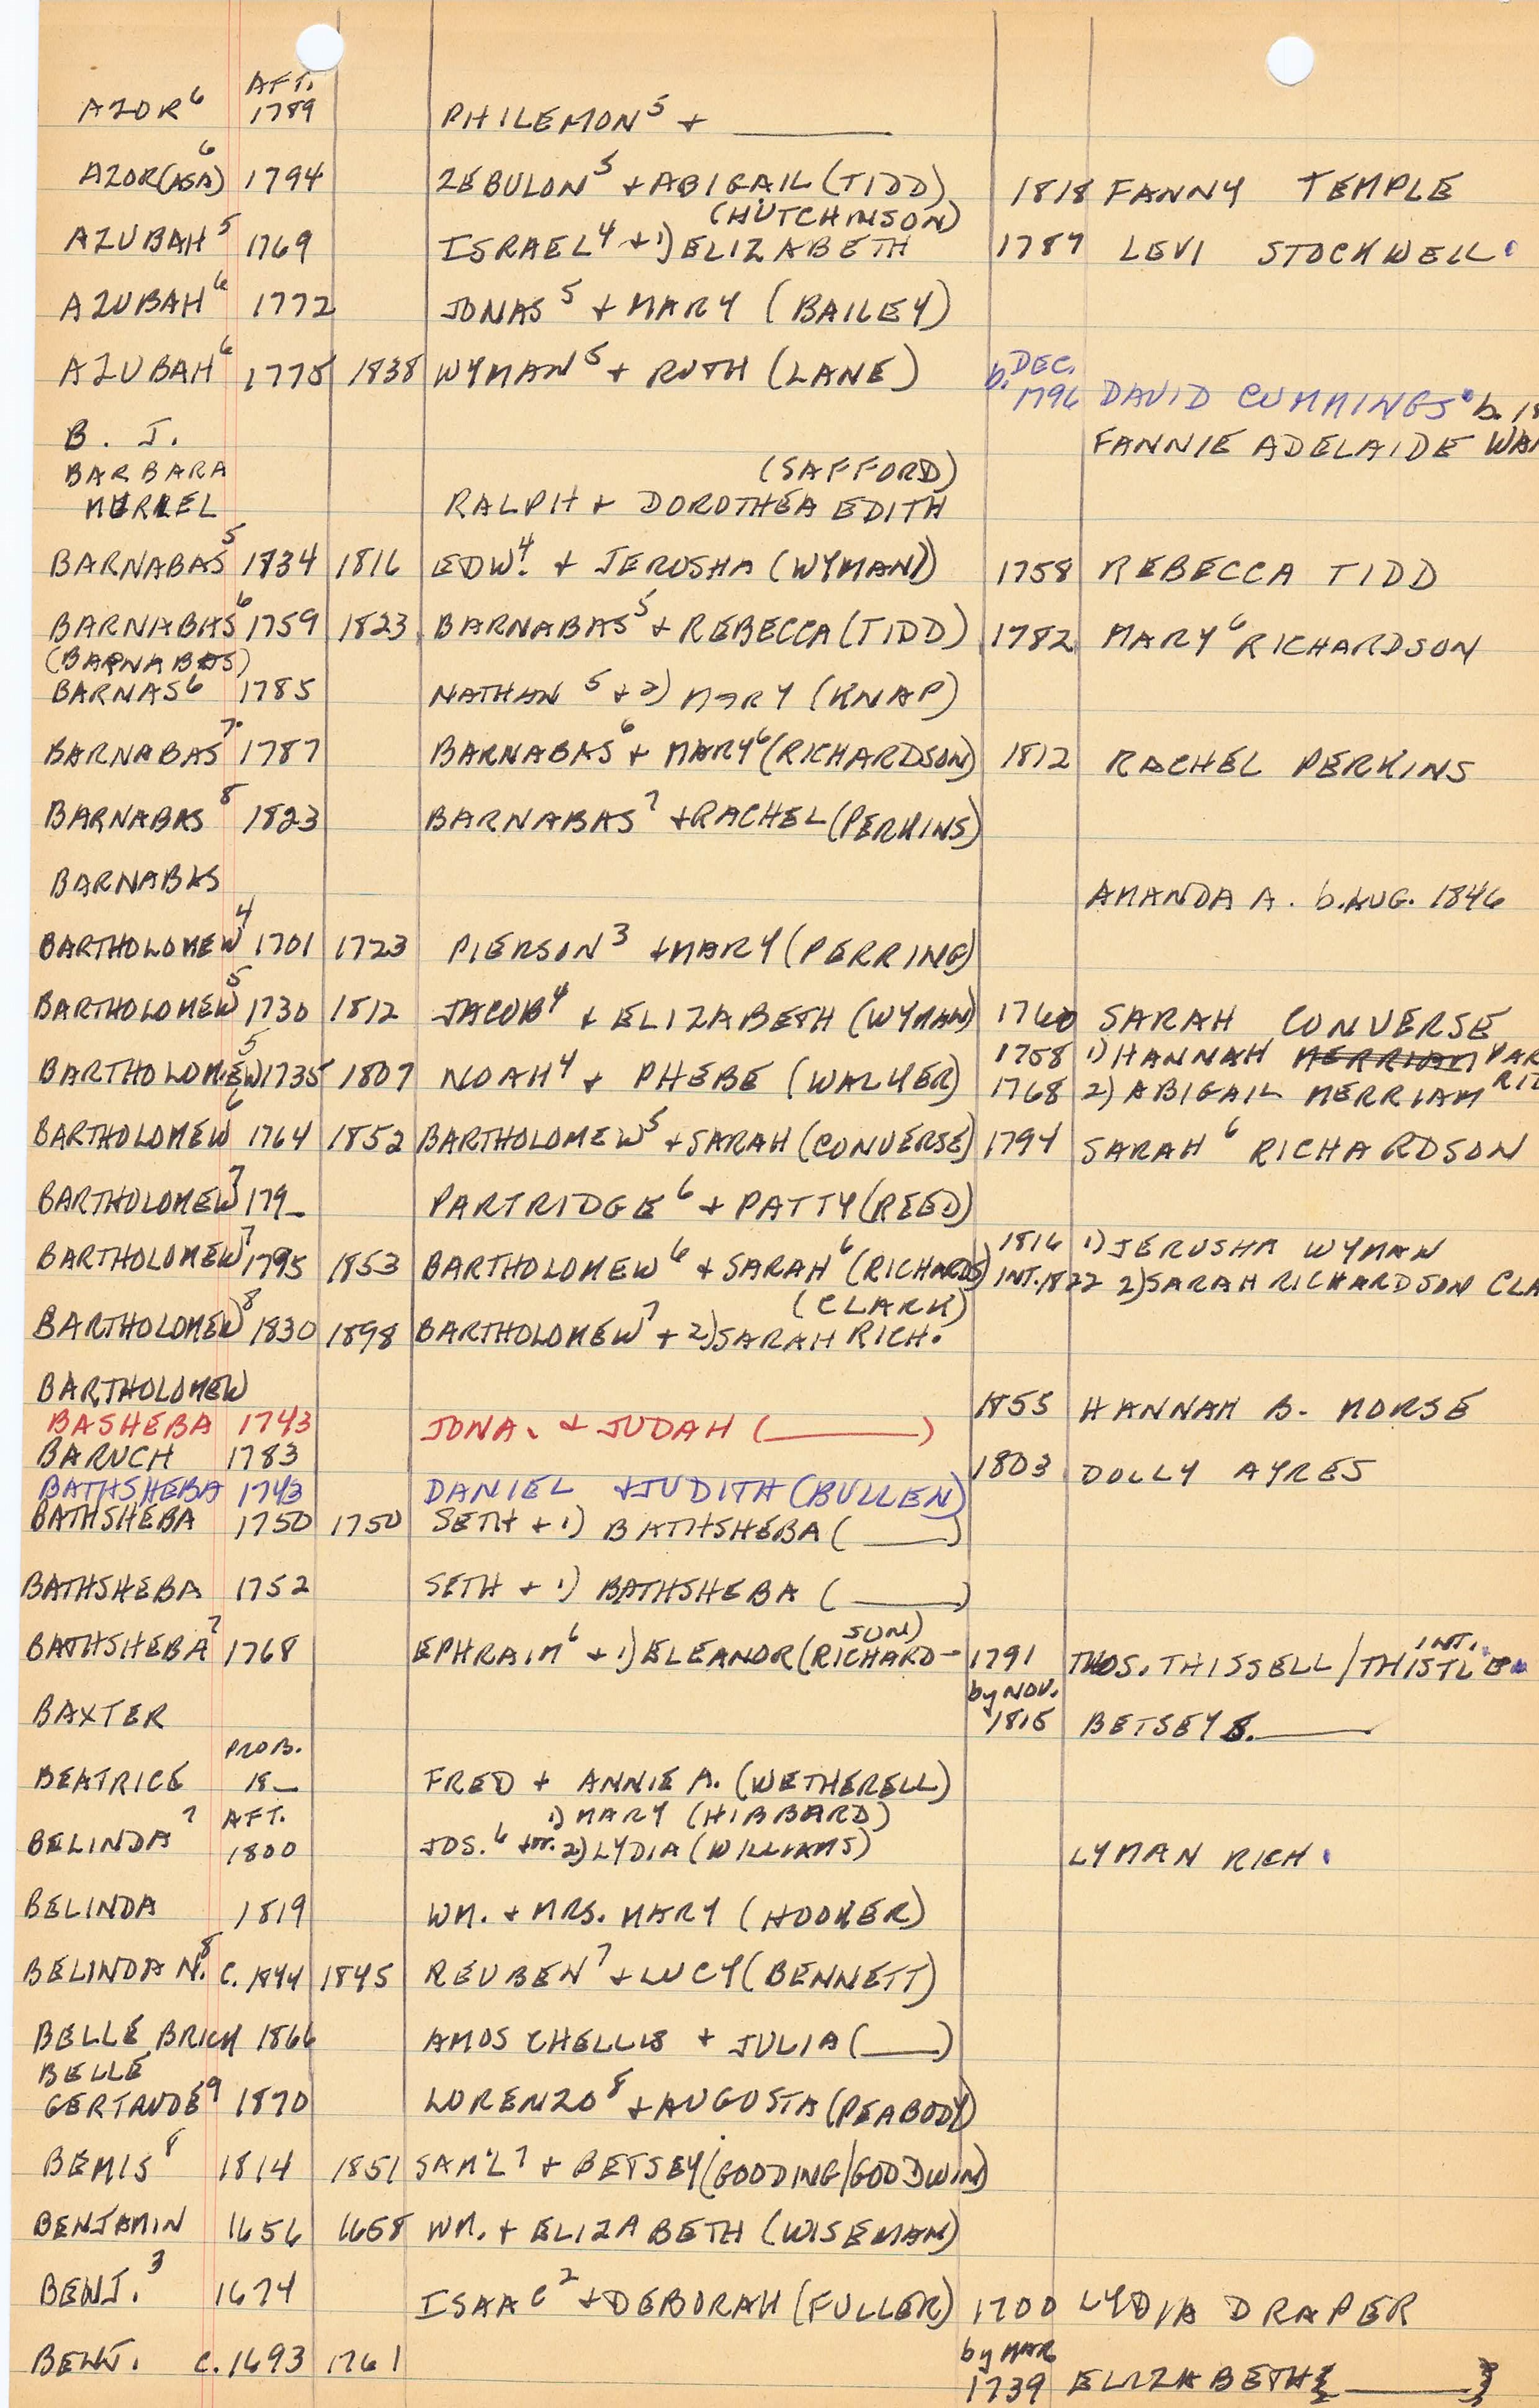 AFT.
AZOR⁶ 1789 PHILEMON⁵ + ____
AZOR(ASA)⁶ 1794 ZEBULON⁵ + ABIGAIL (TIDD) 1818 FANNY TEMPLE
(HUTCHINSON)
AZUBAH⁵ 1769 ISRAEL⁴ + 1) ELIZABETH 1787 LEVI STOCKWELL
AZUBAH⁶ 1772 JONAS⁵ + MARY (BAILEY)
AZUBAH⁶ 1775 1838 WYMAN⁵ + RUTH (LANE) b. DEC. 1796 DAVID CUMMINGS b. 18
B. J. FANNIE ADELAIDE WA
BARBARA (SAFFORD)
MERLEL RALPH + DOROTHEA EDITH
BARNABAS⁵ 1734 1816 EDW.⁴ + JERUSHA (WYMAN) 1758 REBECCA TIDD
BARNABAS⁶ 1759 1823 BARNABAS⁵ + REBECCA (TIDD) 1782 MARY⁶ RICHARDSON
(BARNABAS)
BARNAS⁶ 1785 NATHAN⁵ + 2) MARY (KNAP)
BARNABAS⁷ 1787 BARNABAS⁶ + MARY⁶ (RICHARDSON) 1812 RACHEL PERKINS
BARNABAS⁸ 1823 BARNABAS⁷ + RACHEL (PERKINS)
BARNABAS AMANDA A. b. AUG. 1846
BARTHOLOMEW⁴ 1701 1723 PIERSON³ + MARY (PERRING)
BARTHOLOMEW⁵ 1730 1812 JACOB⁴ + ELIZABETH (WYMAN) 1760 SARAH CONVERSE
1758 1) HANNAH MERRIAM PAR
BARTHOLOMEW⁵ 1735 1807 NOAH⁴ + PHEBE (WALKER) 1768 2) ABIGAIL MERRIAM RID
BARTHOLOMEW⁶ 1764 1852 BARTHOLOMEW⁵ + SARAH (CONVERSE) 1794 SARAH⁶ RICHARDSON
BARTHOLOMEW⁷ 179_ PARTRIDGE⁶ + PATTY (REED)
1816 1) JERUSHA WYMAN
BARTHOLOMEW⁷ 1795 1853 BARTHOLOMEW⁶ + SARAH⁶ (RICHARDS) INT. 1822 2) SARAH RICHARDSON CLA
(CLARK)
BARTHOLOMEW⁸ 1830 1898 BARTHOLOMEW⁷ + 2) SARAH RICH.
BARTHOLOMEW 1855 HANNAH B. MORSE
BASHEBA 1743 JONA. + JUDAH (____)
BARUCH 1783 1803 DOLLY AYRES
BATHSHEBA 1743 DANIEL + JUDITH (BULLEN)
BATHSHEBA 1750 1750 SETH + 1) BATHSHEBA (____)
BATHSHEBA 1752 SETH + 1) BATHSHEBA (____)
SON) INT.
BATHSHEBA⁷ 1768 EPHRAIM⁶ + 1) ELEANOR (RICHARD- 1791 THOS. THISSELL/THISTLE
by NOV.
BAXTER 1815 BETSEY S. ____
PROB.
BEATRICE 18_ FRED + ANNIE A. (WETHERELL)
AFT. 1) MARY (HIBBARD)
BELINDA⁷ 1800 JOS.⁶ + or 2) LYDIA (WILLIAMS) LYMAN RICH.
BELINDA 1819 WM. + MRS. MARY (HOOKER)
BELINDA N.⁸ C. 1844 1845 REUBEN⁷ + LUCY (BENNETT)
BELLE BRICK 1866 AMOS CHELLIS + JULIA (____)
BELLE
GERTRUDE⁹ 1870 LORENZO⁸ + AUGUSTA (PEABODY)
BEMIS⁸ 1814 1851 SAM'L⁷ + BETSEY (GOODING/GOODWIN)
BENJAMIN 1656 1658 WM. + ELIZABETH (WISEMAN)
BENJ.³ 1674 ISAAC² + DEBORAH (FULLER) 1700 LYDIA DRAPER
by MAR
BENJ. C. 1693 1761 1739 ELIZABETH {____}